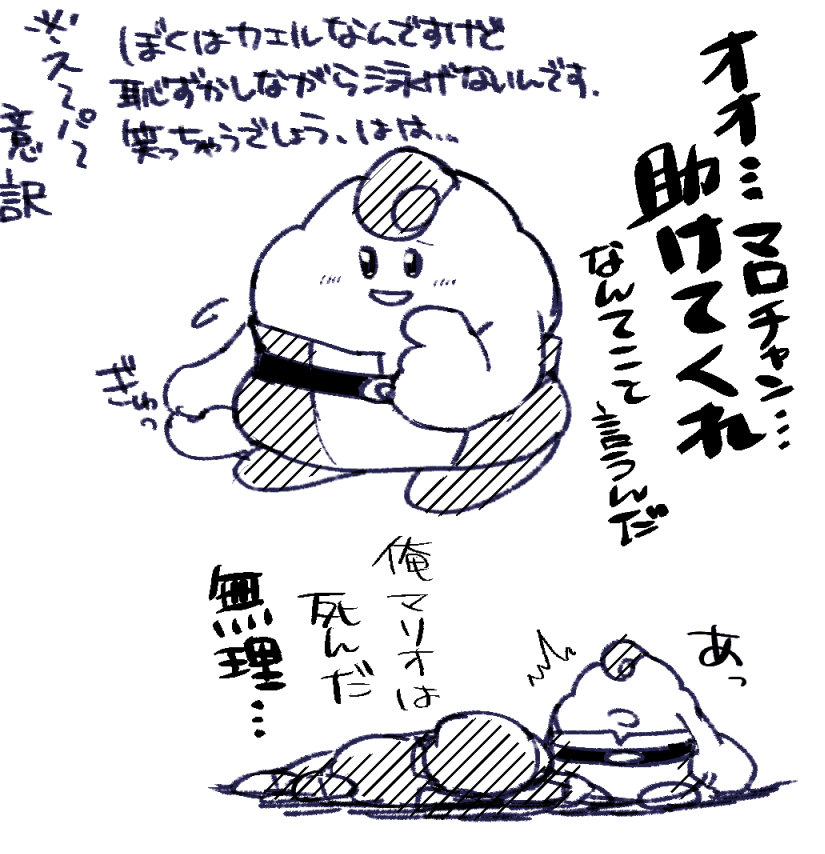 ぼくはカエルなんですけど
恥ずかしながら泳げないんです.
笑っちゃうでしょう、はは…
※スーパー
意訳
オオ…マロチャン…
助けてくれ
なんてこと言うんだ
ぎゅっ
俺マリオは
死んだ
無理…
あっ